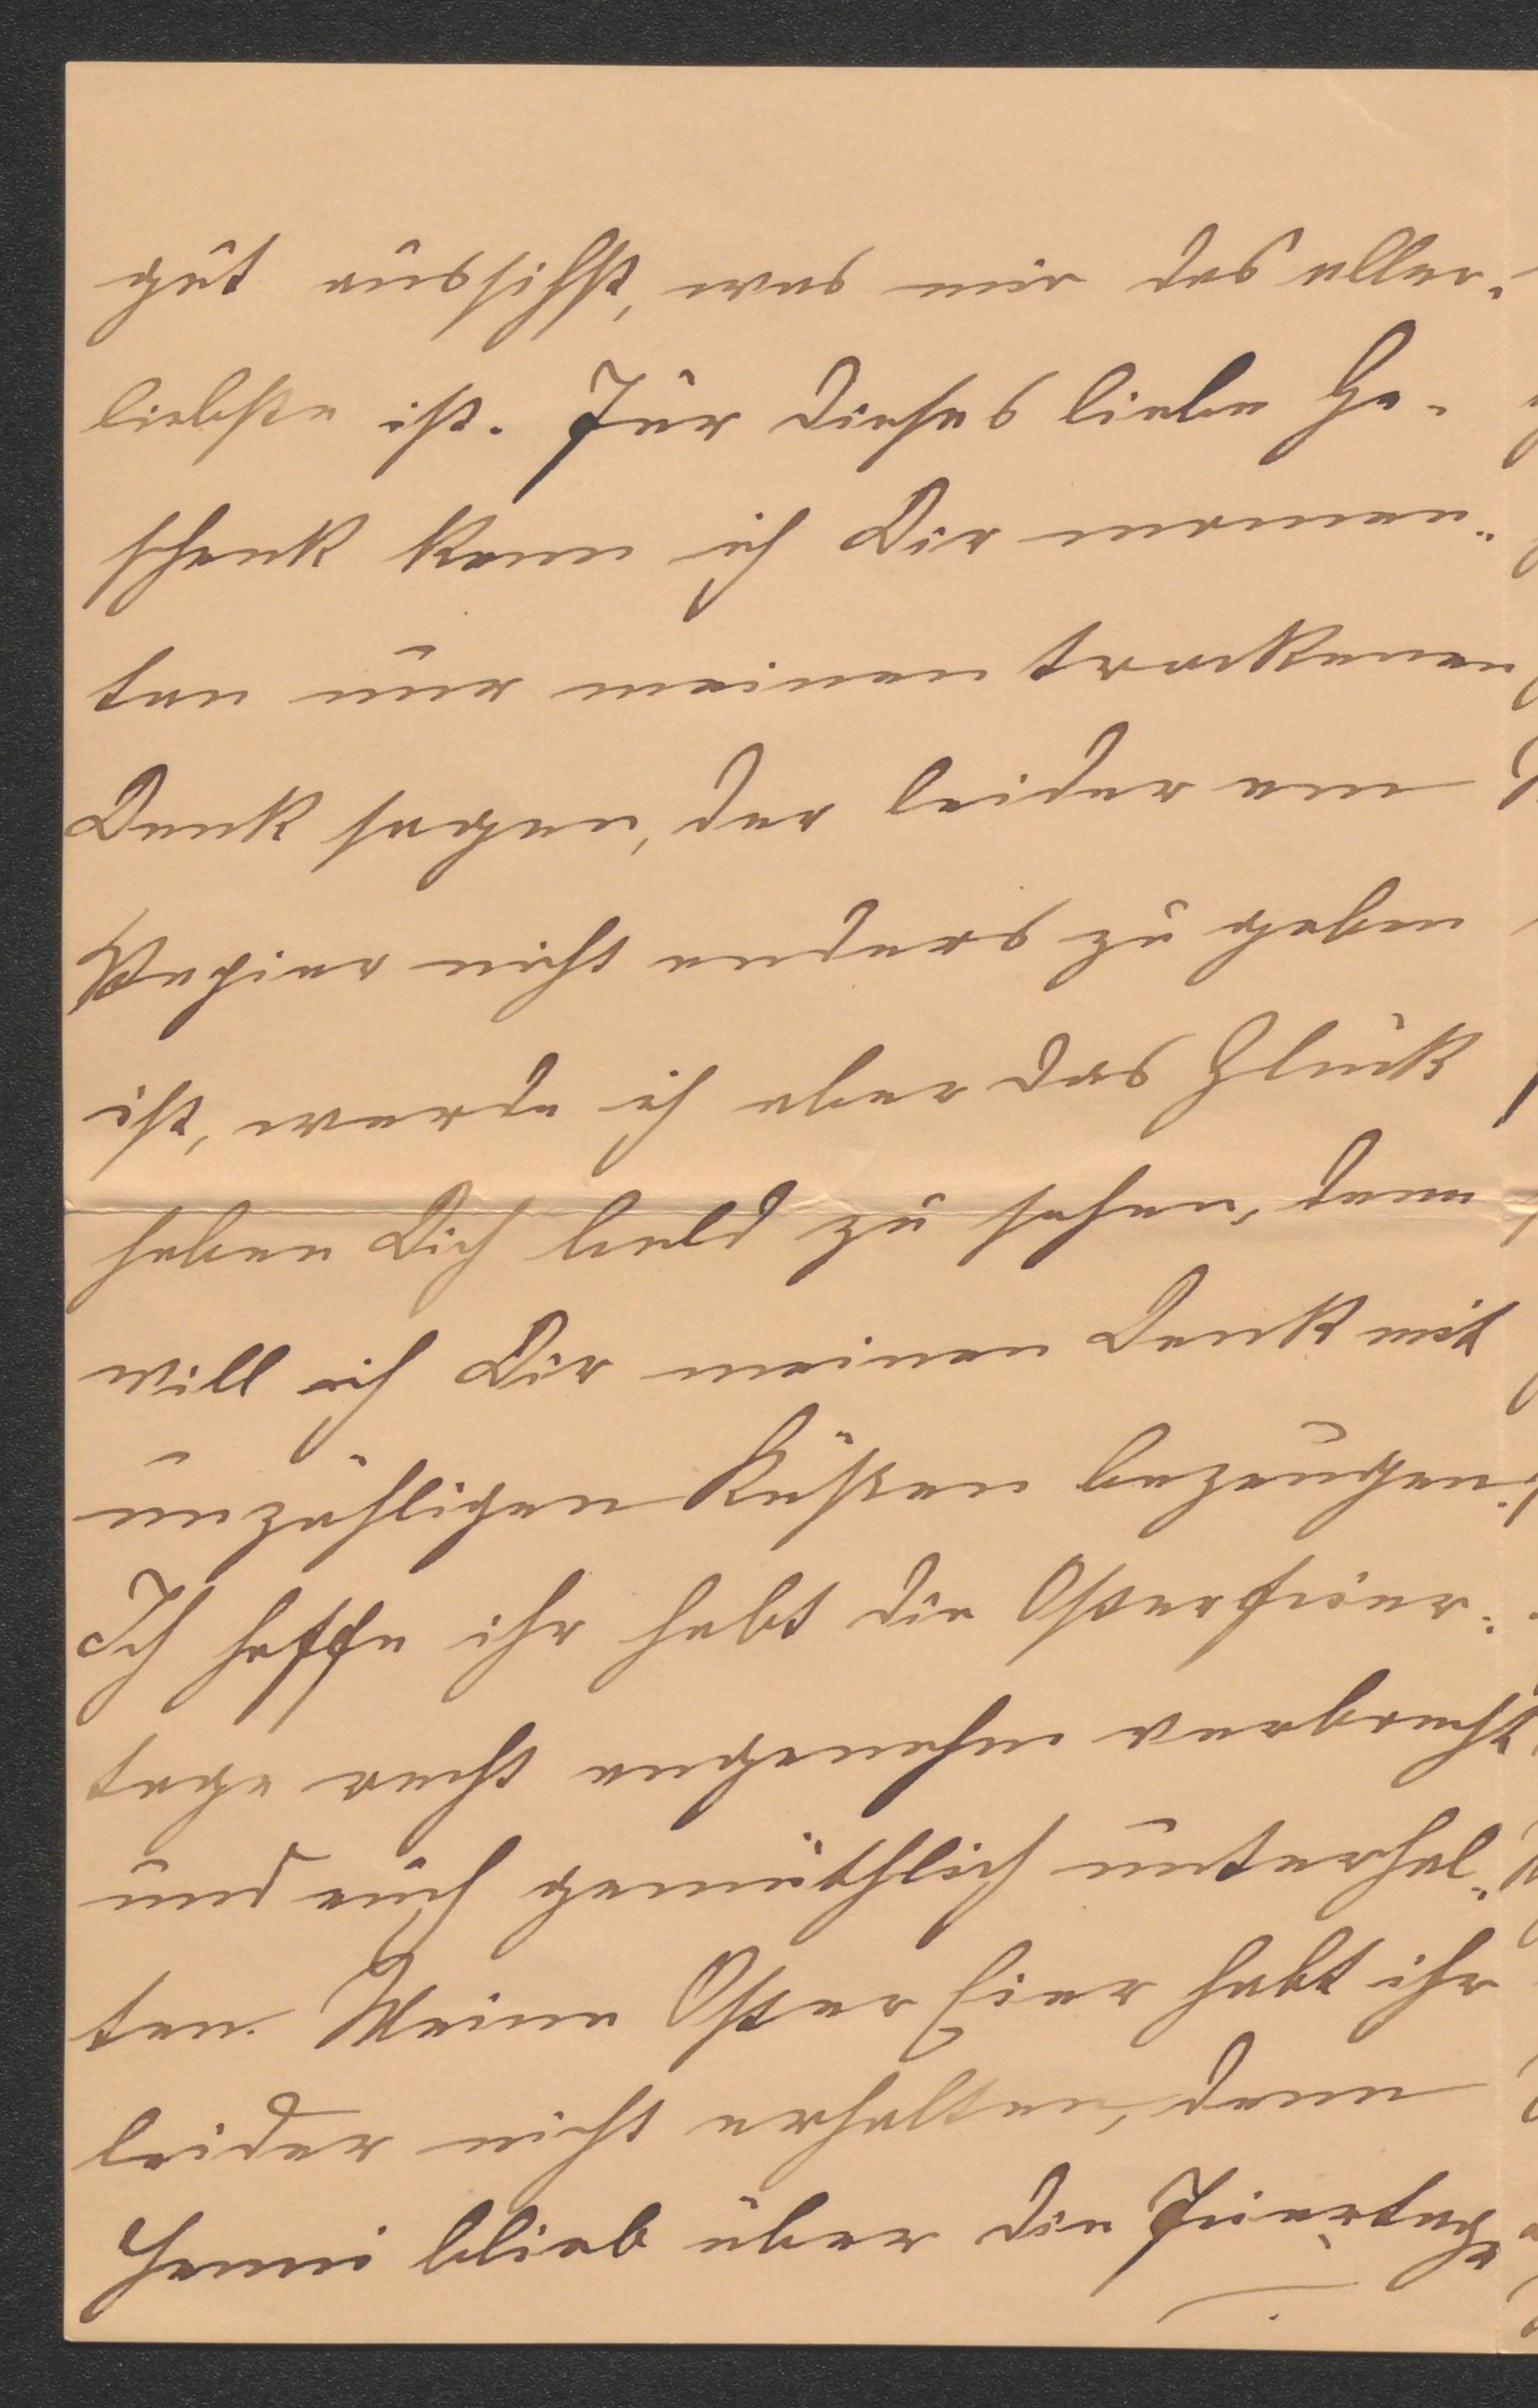 gut aussihst, was mir das aller-
liebste ist. Für dieses liebe Ge-
schenk kann ich Dir momen-
tan nur meinen trockenen
Dank sagen, der leider am
Papier nicht anders zu geben
ist, werde ich aber das Glück
haben Dich bald zu sehen, dann
will ich Dir meinen Dank mit
unzähligen Küßen bezeugen.
Ich hoffe ihr habt die Osterfeier-
tage recht angenehm verbracht
und euch gemüthlich unterhal-
ten. Meine Oster Eier habt ihr
leider nicht erhalten, denn
blieb über die Feiertage